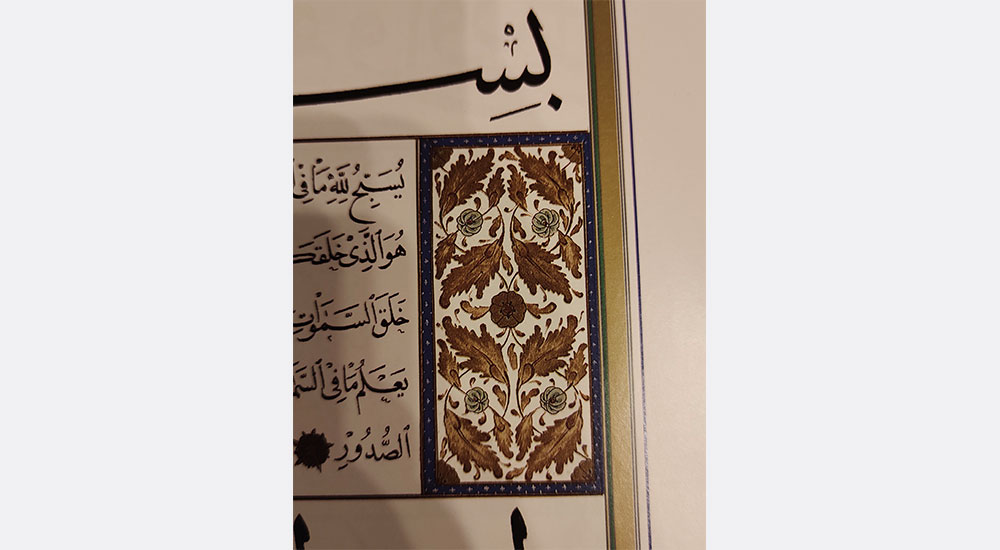 بِسْـ
يُسَبِّحُ لِلّٰهِ مَا فِى
هُوَ الَّذِى خَلَقَكُ
خَلَقَ السَّمٰوَاتِ
يَعْلَمُ مَا فِى السَّمٰ
الصُّدُورِ